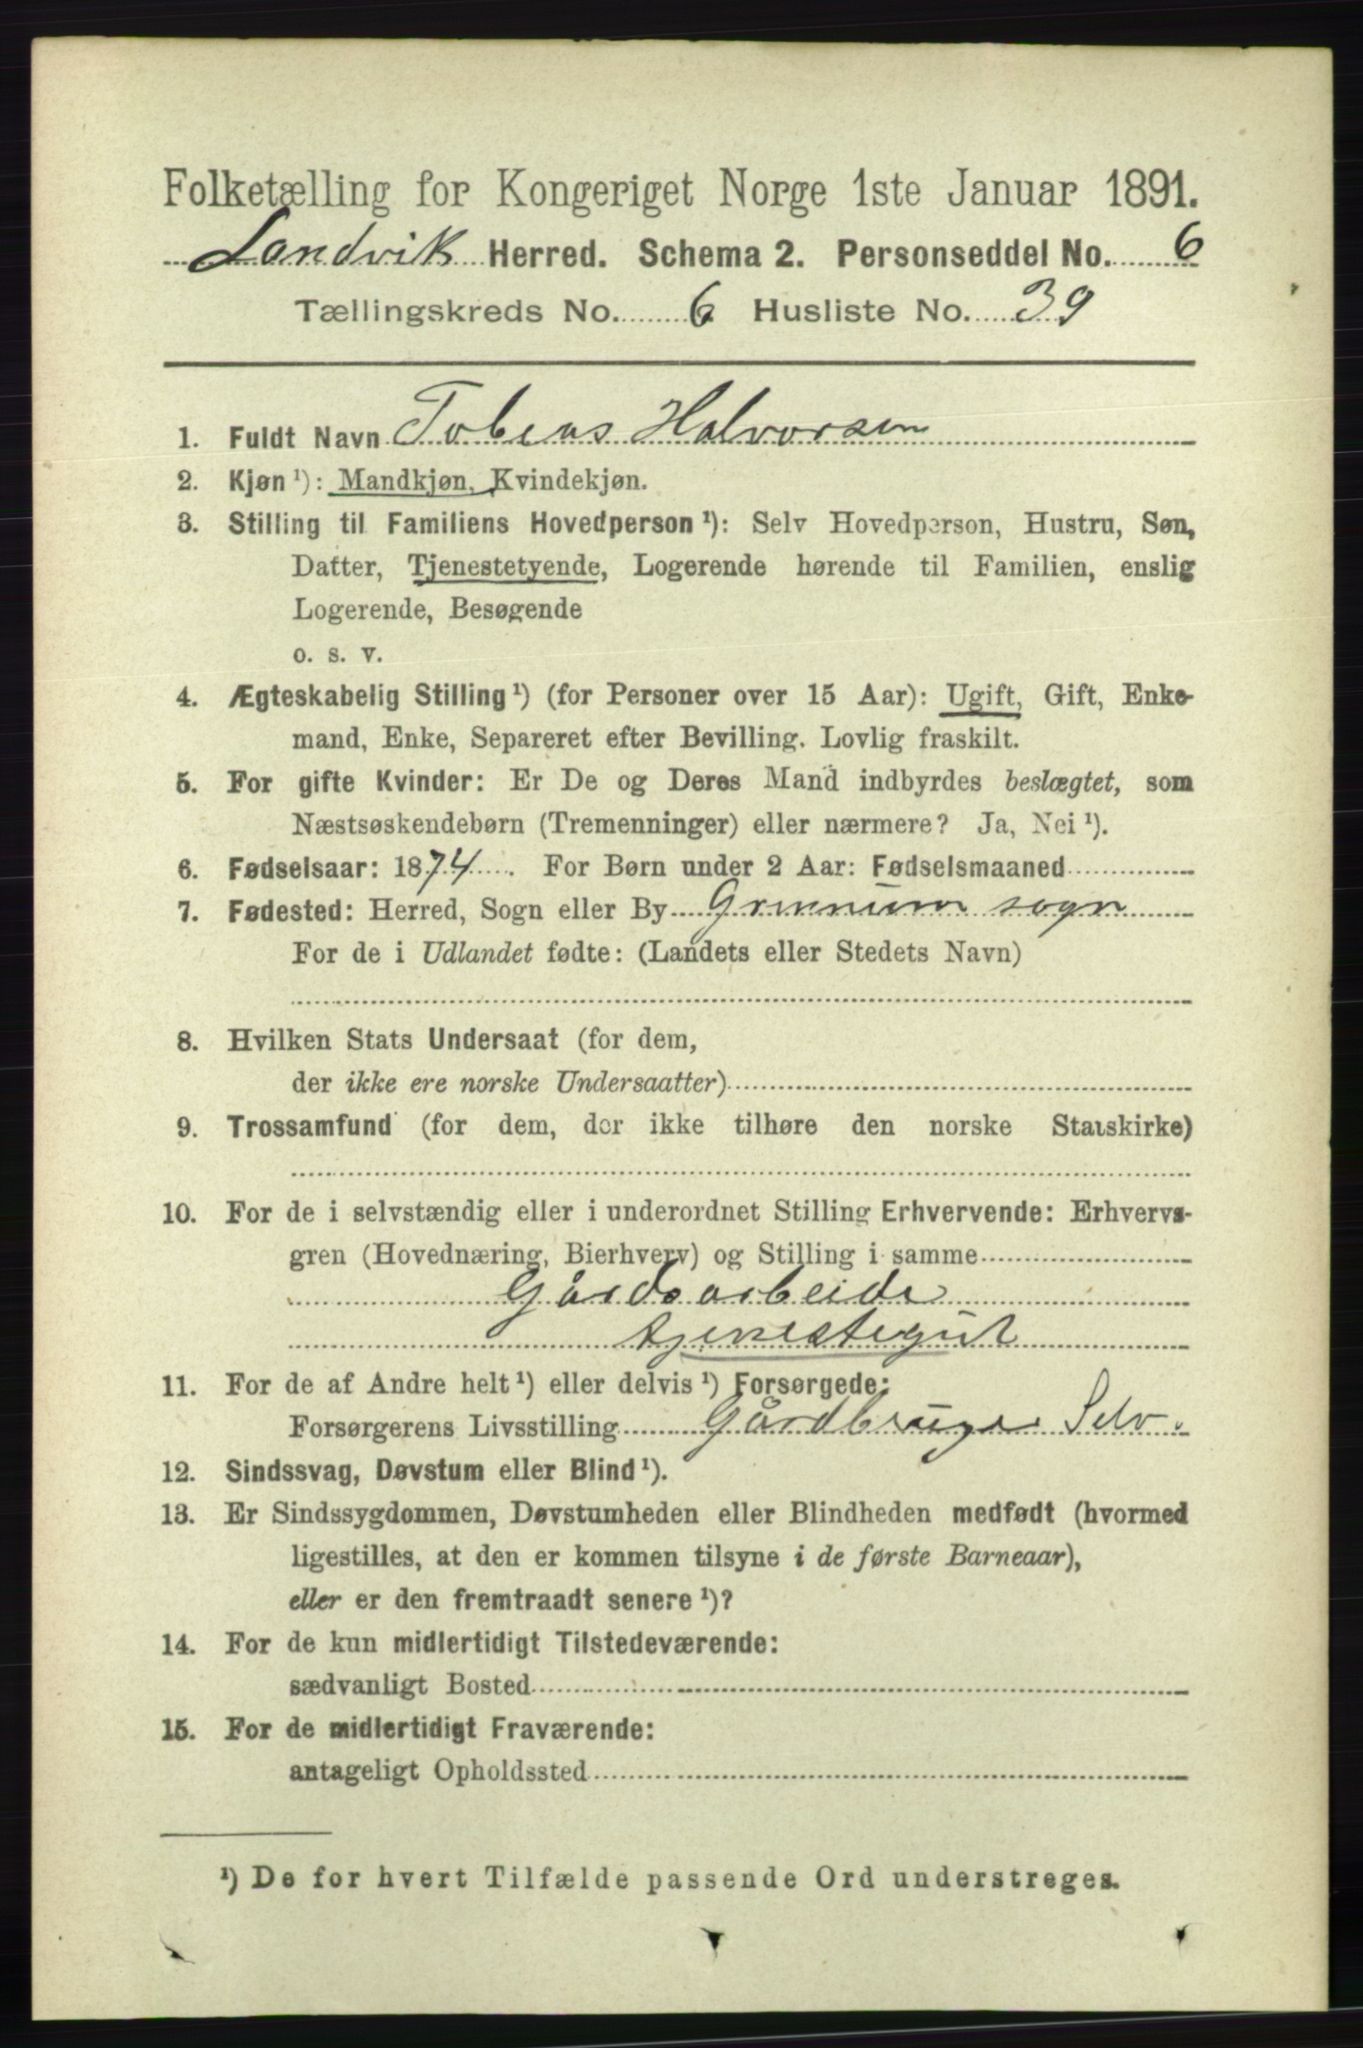 Folketælling for Kongeriget Norge 1ste Januar 1891.
Landvik Herred. Schema 2. Personseddel No. 6
Tællingskreds No. 6 Husliste No. 39
1. Fuldt Navn Tobias Halvorsen
2. Kjøn ¹): Mandkjøn, Kvindekjøn.
3. Stilling til Familiens Hovedperson ¹): Selv Hovedperson, Hustru, Søn,
Datter, Tjenestetyende, Logerende hørende til Familien, enslig
Logerende, Besøgende
o. s. v.
4. Ægteskabelig Stilling ¹) (for Personer over 15 Aar): Ugift, Gift, Enke-
mand, Enke, Separeret efter Bevilling. Lovlig fraskilt.
5. For gifte Kvinder: Er De og Deres Mand indbyrdes beslægtet, som
Næstsøskendebørn (Tremenninger) eller nærmere? Ja, Nei ¹).
6. Fødselsaar: 1874. For Børn under 2 Aar: Fødselsmaaned
7. Fødested: Herred, Sogn eller By sogn
For de i Udlandet fødte: (Landets eller Stedets Navn)
8. Hvilken Stats Undersaat (for dem,
der ikke ere norske Undersaatter)
9. Trossamfund (for dem, der ikke tilhøre den norske Statskirke)
10. For de i selvstændig eller i underordnet Stilling Erhvervende: Erhvervs-
gren (Hovednæring, Bierhverv) og Stilling i samme
Gårdsarbeide
tjenestegut
11. For de af Andre helt ¹) eller delvis ¹) Forsørgede:
Forsørgerens Livsstilling Gårdbruger Selv.
12. Sindssvag, Døvstum eller Blind ¹).
13. Er Sindssygdommen, Døvstumheden eller Blindheden medfødt (hvormed
ligestilles, at den er kommen tilsyne i de første Barneaar),
eller er den fremtraadt senere ¹)?
14. For de kun midlertidigt Tilstedeværende:
sædvanligt Bosted
15. For de midlertidigt Fraværende:
antageligt Opholdssted
¹) De for hvert Tilfælde passende Ord understreges.